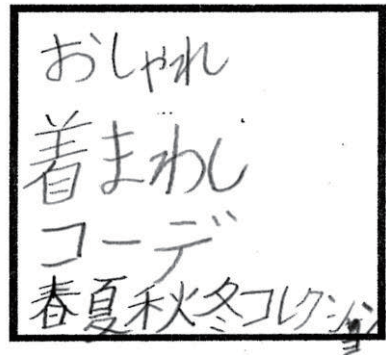 おしゃれ
着まわし
コーデ
春夏秋冬コレクション